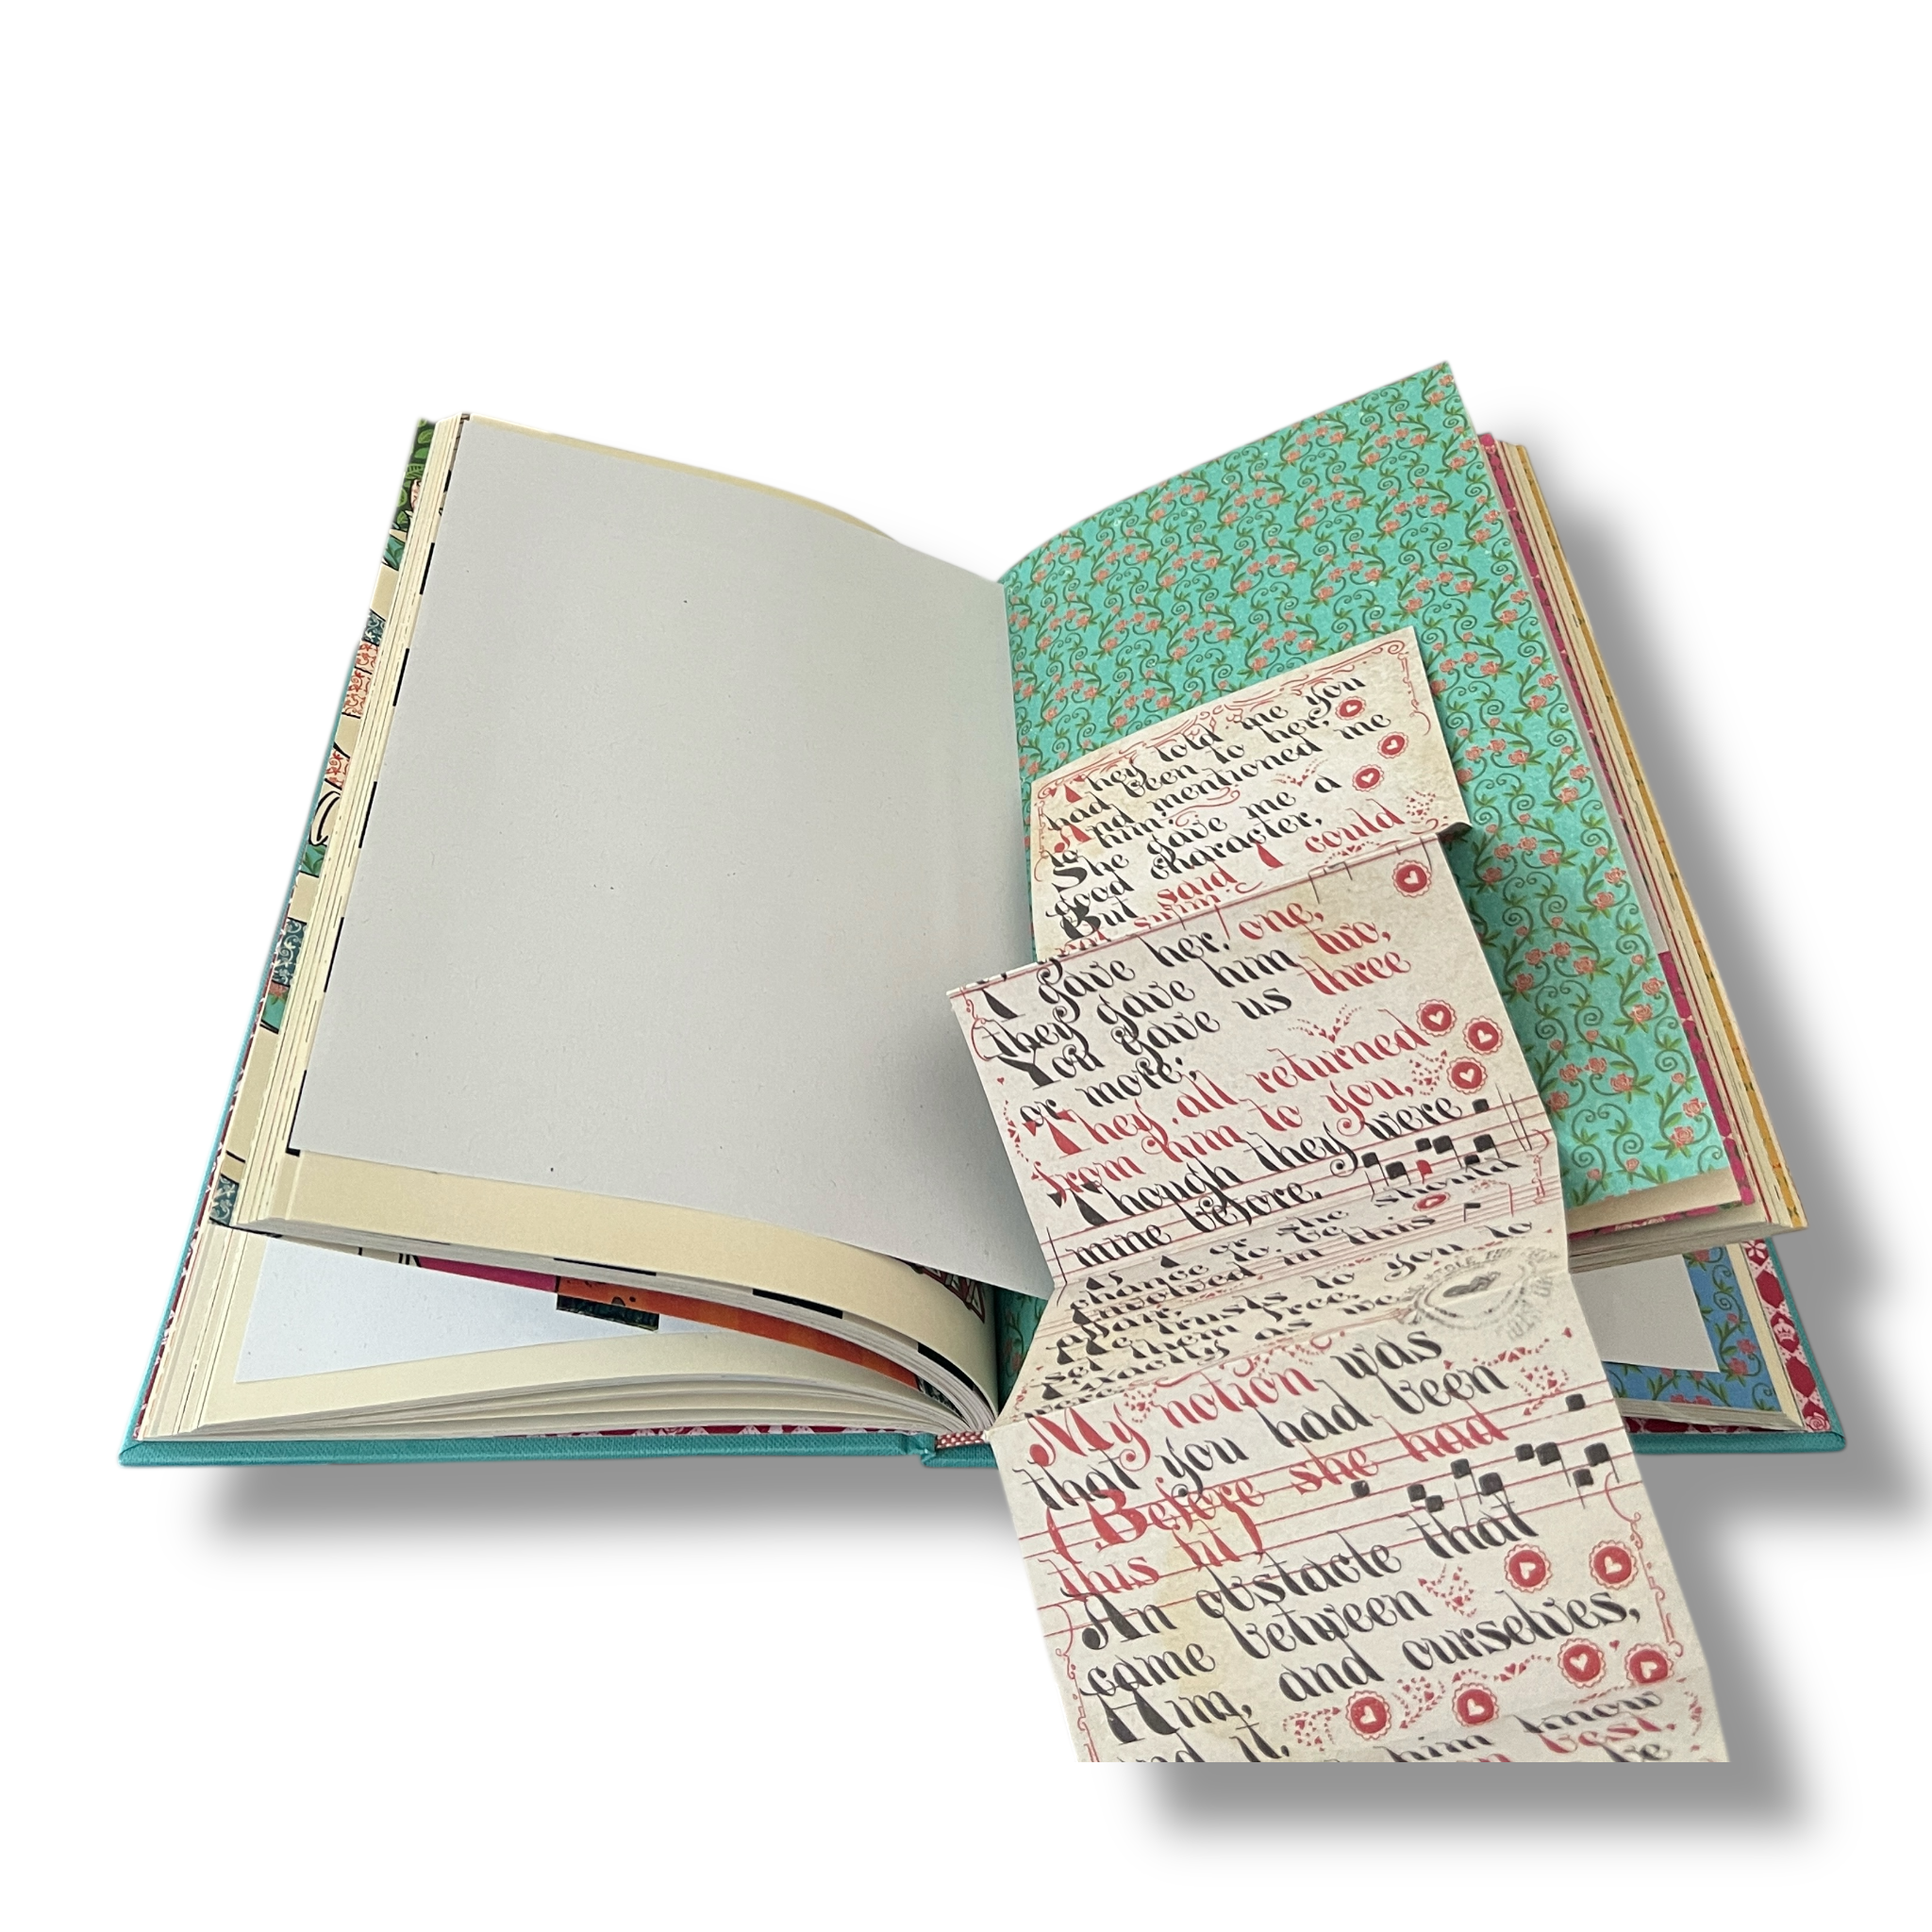 They told me you
had been to her,
And mentioned me
to him:
She gave me a
good character,
But said I could
not swim.
I gave her one,
they gave him two,
You gave us three
or more;
They all returned
from him to you,
Though they were
mine before.
If I or she should
chance to be
involved in this
affair,
He trusts to you to
set them free
Exactly as we
My notion was
that you had been
(Before she had
this fit)
An obstacle that
came between
Him, and ourselves,
and it.
him know
best,
be